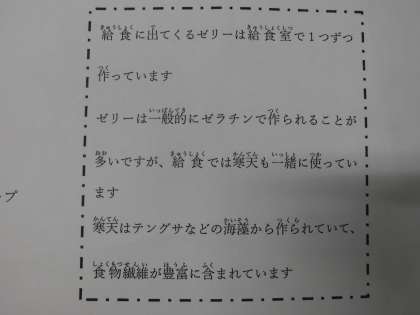 給食に出てくるゼリーは給食室で１つずつ
作っています
ゼリーは一般的にゼラチンで作られることが
多いですが、給食では寒天も一緒に使ってい
ます
寒天はテングサなどの海藻から作られていて、
食物繊維が豊富に含まれています
ップ